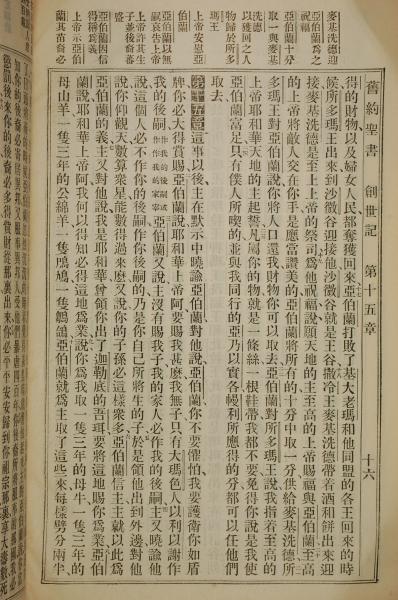 舊約聖書 創世記 第十五章 十六
麥基洗德迎
亞伯蘭爲之
祝福
亞伯蘭十分
取一與麥基
洗德
以獲回之人
物歸於所多
瑪王
上帝安慰亞
伯蘭
亞伯蘭以無
嗣哀告上帝
上帝許其生
子並後裔蕃
盛
亞伯蘭因信
得稱爲義
上帝示亞伯
蘭其苗裔必
得的財物以及婦女人民都奪獲回來亞伯蘭打敗了基大老瑪和他同盟的各王回來的時
候所多瑪王出來到沙微谷迎接他沙微谷就是王谷撒冷王麥基洗德帶着酒和餅出來迎
接麥基洗德是至上上帝的祭司爲他祝福說願天地的主至高的上帝賜福與亞伯蘭至高
的上帝將敵人交在你手是應當讚美的亞伯蘭將所有的十分中取一分供給麥基洗德所
多瑪王對亞伯蘭說你將人口還我財物你可以取去亞伯蘭對所多瑪王說我指着至高的
上帝耶和華天地的主起誓凡屬你的物就是一條絲一根鞋帶我都不要免得你說是我使
亞伯蘭富足只有僕人所喫的並與我同行的亞乃以實各幔利所應得的分都可以任他們
取去
第十五章這事以後主在默示中曉諭亞伯蘭對他說亞伯蘭你不要懼怕我要護衛你如盾
牌你必大得賞賜亞伯蘭說耶和華上帝阿要賜我甚麽我無子只有大瑪色人以利以謝作
我的後嗣亞伯蘭又說主沒有賜我子我的家人必作我的後嗣主又曉諭他
說這個人必不作你的後嗣作你後嗣的乃是你自己所將生的子於是領他出到外邊對他
說你仰觀天數算衆星能數得過來麽又說你的子孫必這樣衆多亞伯蘭信主主就以此爲
亞伯蘭的義主又對他說我是耶和華曾領你出了迦勒底的吾珥要將這地賜你爲業亞伯
蘭說耶和華上帝阿我可以得知必得這地爲業說你爲我取一隻三年的母牛一隻三年的
母山羊一隻三年的公綿羊一隻鳲鳩一隻鶵鴿亞伯蘭就爲主取了這些來每樣劈分兩半